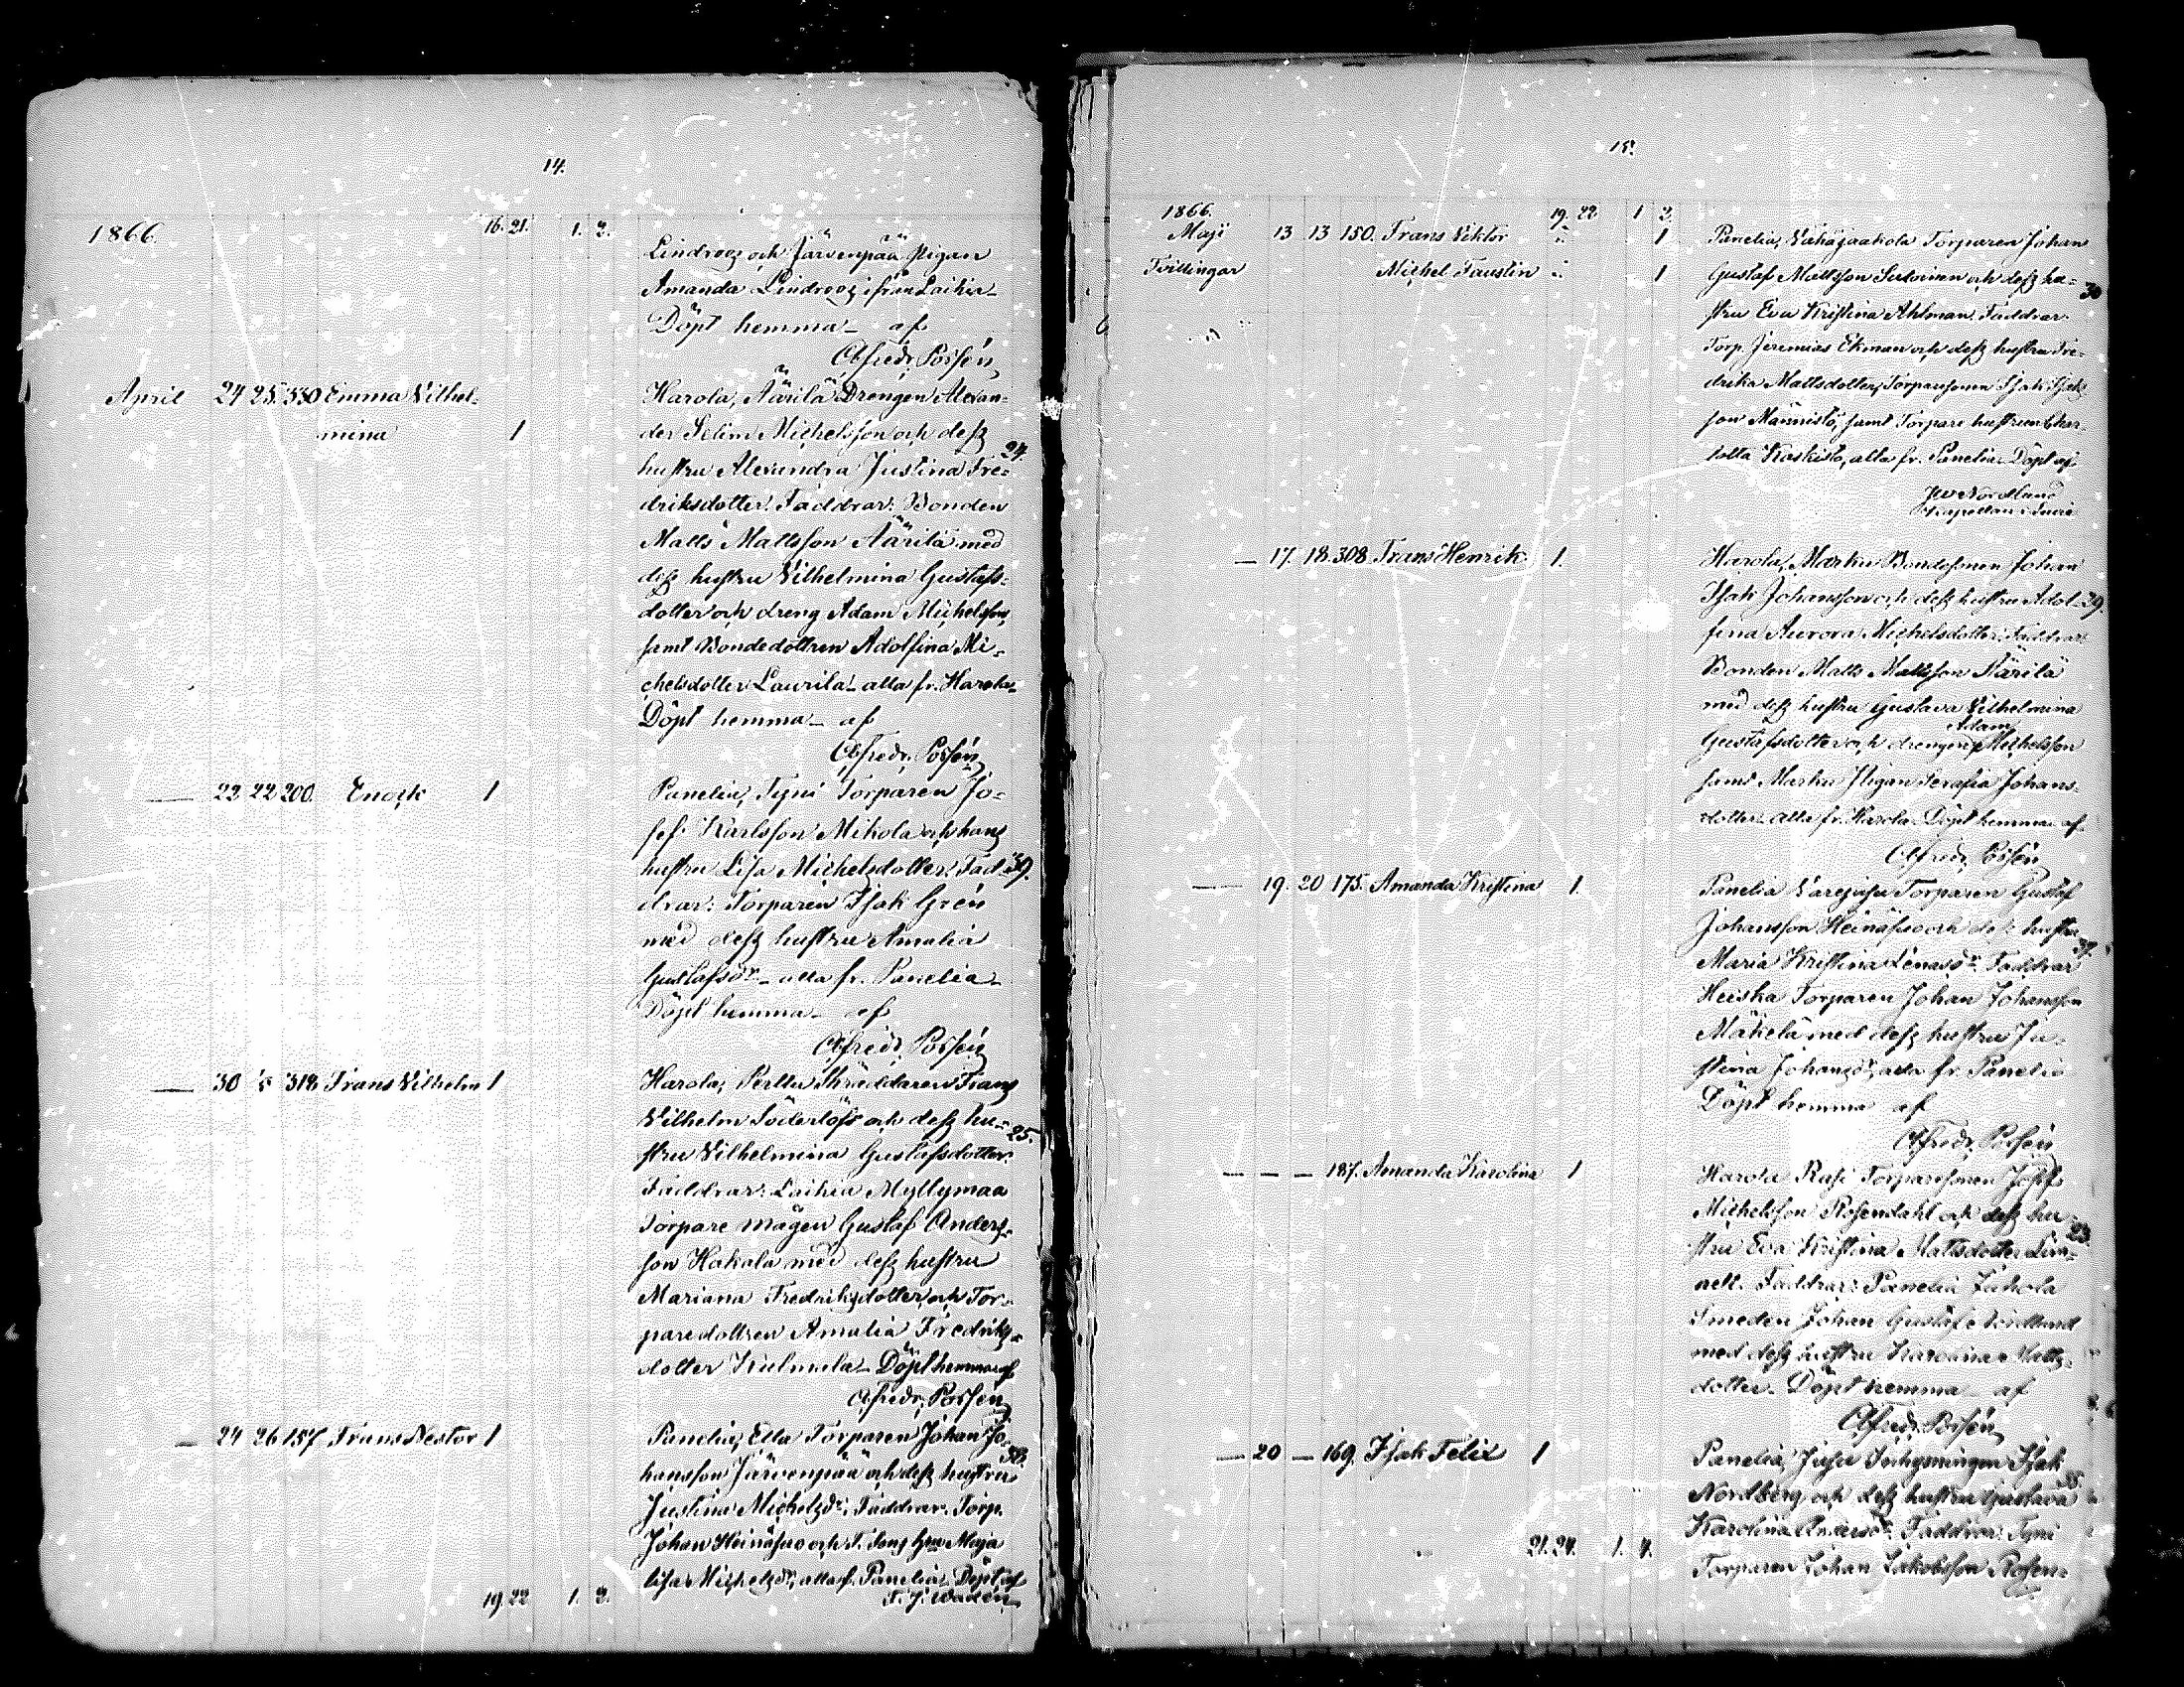 14.
1866.
16. 21. 1. 2.
Lindroos och Järvenpää Pigan
Amanda Lindroos ifrån Laihia
Döpt hemma af
Alfredr. Possén
April 24 25. 330 Emma Vilhel-
mina 1
Harola, Äärilä Drengen Alexan-
der Selim Michelsson och dess
hustru Alexandra Justina Fre- 24.
driksdotter. Faddrar: Bonden
Matts Mattsson Äärilä med
dess hustru Vilhelmina Gustafs-
dotter och dreng Adam Michelsson,
samt Bondedottren Adolfina Mi-
chelsdotter Laurila alla fr. Harola
Döpt hemma af
Alfredr. Possén
22 22 200. Enock 1
Panelia, Tyni Torparen Jo-
sef Karlsson Mikola och hans
hustru Lisa Michelsdotter. Fad- 39.
drar: Torparen Isak Grén
med dess hustru Amalia
Gustafsdr alla fr. Panelia
Döpt hemma af
Alfredr. Possén
30 318 Frans Vilhelm 1
Harola, Perttu Skräddaren Frans
Vilhelm Söderlöf och dess hu- 25.
stru Vilhelmina Gustafsdotter.
Faddrar: Laihia Myllymaa
Torpare mågen Gustaf Anders-
son Hakala med dess hustru
Mariana Fredriksdotter och Tor-
paredottren Amalia Fredriks-
dotter Kulmala Döpt hemma af
Alfredr. Possén
24 26 157 Frans Nestor 1
Panelia, Ella Torparen Johan Jo-
hansson Järvenpää och dess hustru 38.
Justina Michelsdr. Faddrar. Torp.
Johan Heinäsuo och Maja
lisa Michelsdr, alla fr. Panelia Döpt af
19. 22 1. 2.
15.
1866.
19. 22 1 2.
Maji 13 13 150. Frans Viktor 1
Tvillingar Michel Faustin 1
Panelia, Vähäjaakola Torparen Johan
Gustaf Mattsson Sutoinen och dess hu- 30
stru Eva Kristina Ahlman. Faddrar.
Torp. Jeremias Ekman och dess hustru Fre-
drika Mattsdotter, Torparesonen Isak Isaks-
son Männistö, samt Torpare hustrun Char-
lotta Kaskisto, alla fr. Panelia. Döpt af
Nordlund
Kapellan
17. 18. 308. Frans Henrik 1.
Harola, Marku Bondesonen Johan
Isak Johansson och dess hustru Adol- 29.
fina Aurora Michelsdotter. Faddrar
Bonden Matts Mattsson Äärilä
med dess hustru Gustava Vilhelmina
Adam
Gustafsdotter och drengen Michelsson
samt Marku Pigan Serafia Johans-
dotter alla fr. Harola. Döpt hemma af
Alfredr. Possén
19. 20 175. Amanda Kristina 1.
Panelia Torparen Gustaf
Johansson Heinäsuo och dess hustru
Maria Kristina Faddrar
Heiska Torparen Johan Johansson
Mäkelä med dess hustru Ju-
stina Johansdr, alla fr. Panelia
Döpt hemma af
Alfredr. Possén
187. Amanda Karolina 1
Harola Rasi Torparesonen
Michelsson Rosendahl och dess hu- 23.
stru Eva Kristina Mattsdotter Lin-
nell. Faddrar: Panelia
Smeden Johan Gustaf
med dess hustru Karolina Matts-
dotter. Döpt hemma af
Alfredr. Possén
20 169. Isak Felix 1
Panelia, Isak
Nordberg och dess hustru Gustava 35.
Karolina Andersdr. Faddrar: Tyni
21. 24. 1. 4.
Torparen Johan Jakobsson Rosen-